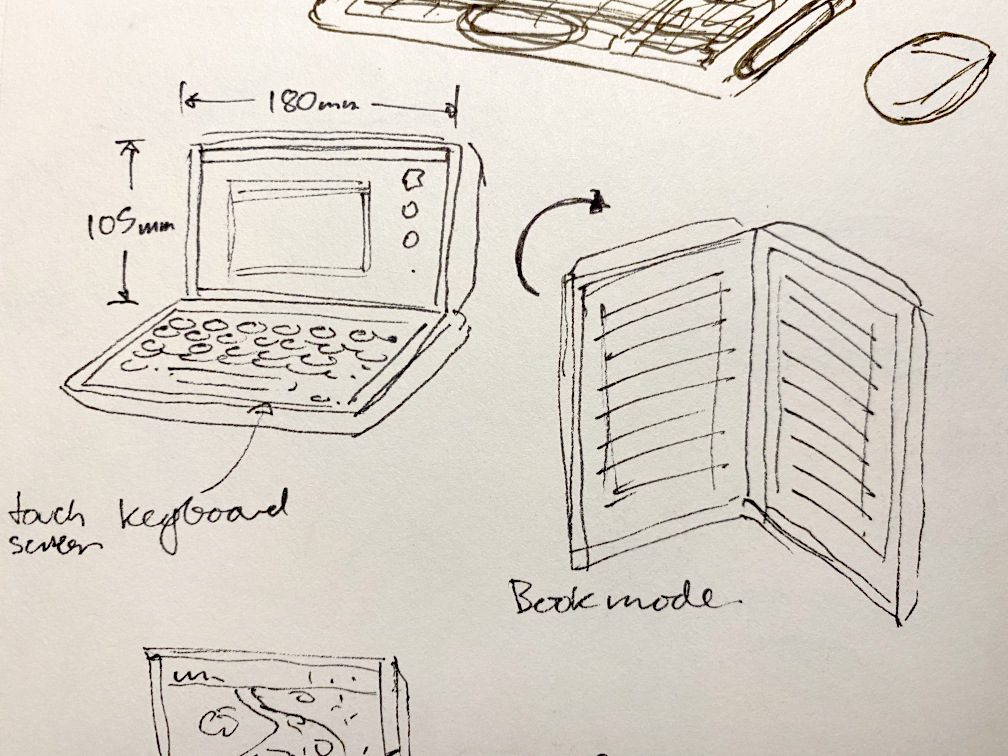 180mm
105mm
touch keyboard
screen
Book mode